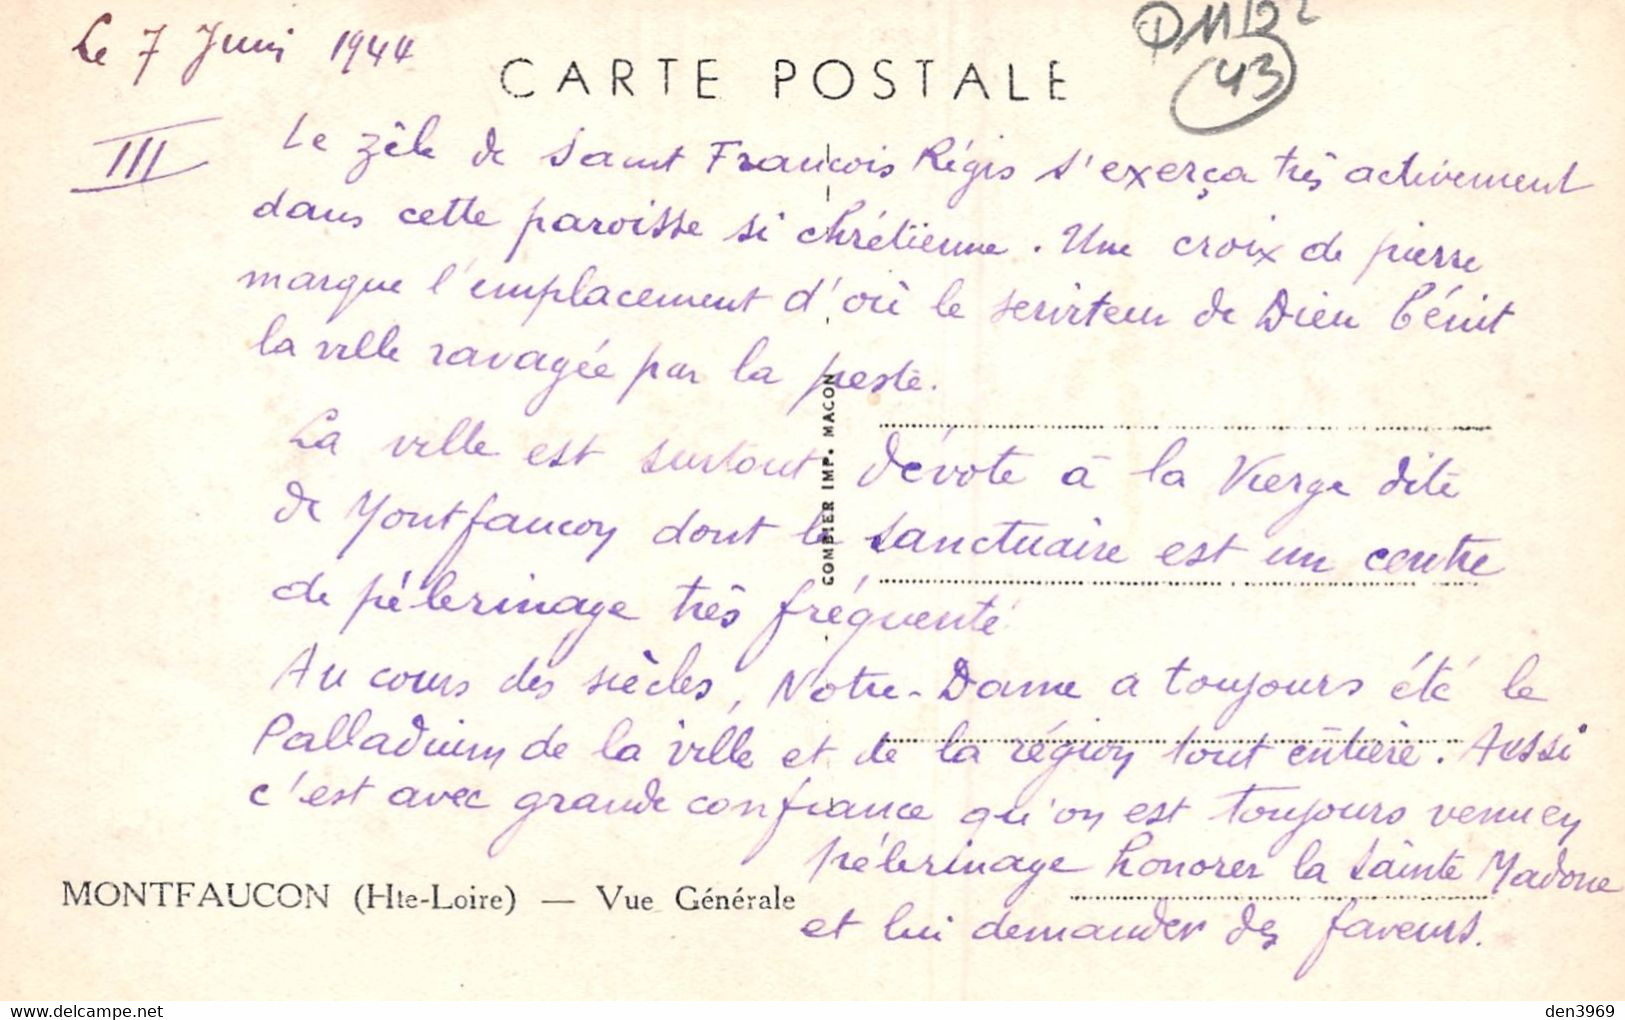 Le 7 Juin 1944
CARTE POSTALE
43
III
Le zèle de Saint François Régis s'exerça très activement
dans cette paroisse si chrétienne. Une croix de pierre
marque l'emplacement d'où le serviteur de Dieu bénit
la ville ravagée par la peste.
La ville est surtout dévote à la Vierge dite
de Montfaucon dont le sanctuaire est un centre
de pélerinage très fréquenté.
Au cours des siècles, Notre-Dame a toujours été le
Palladium de la ville et de la région tout entière. Aussi
c'est avec grande confiance qu'on est toujours venu en
pélerinage honorer la Sainte Madone
et lui demander des faveurs.
COMBIER IMP. MACON
MONTFAUCON (Hte-Loire) — Vue Générale
den3969